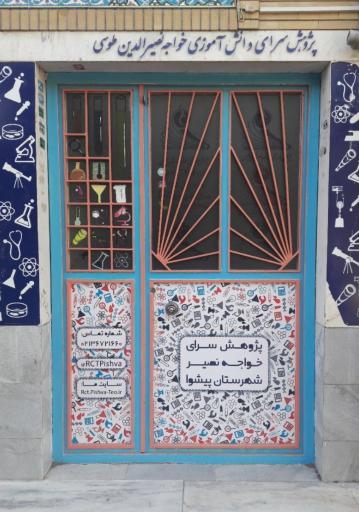 پژوهش سرای دانش آموزی خواجه نصیرالدین طوسی
شماره تماس:
۰۲۱۳۶۷۲۱۶۶۰
@RCTPishva
سایت ما:
Rct.Pishva-Teo.ir
پژوهش سرای
خواجه نصیر
شهرستان پیشوا